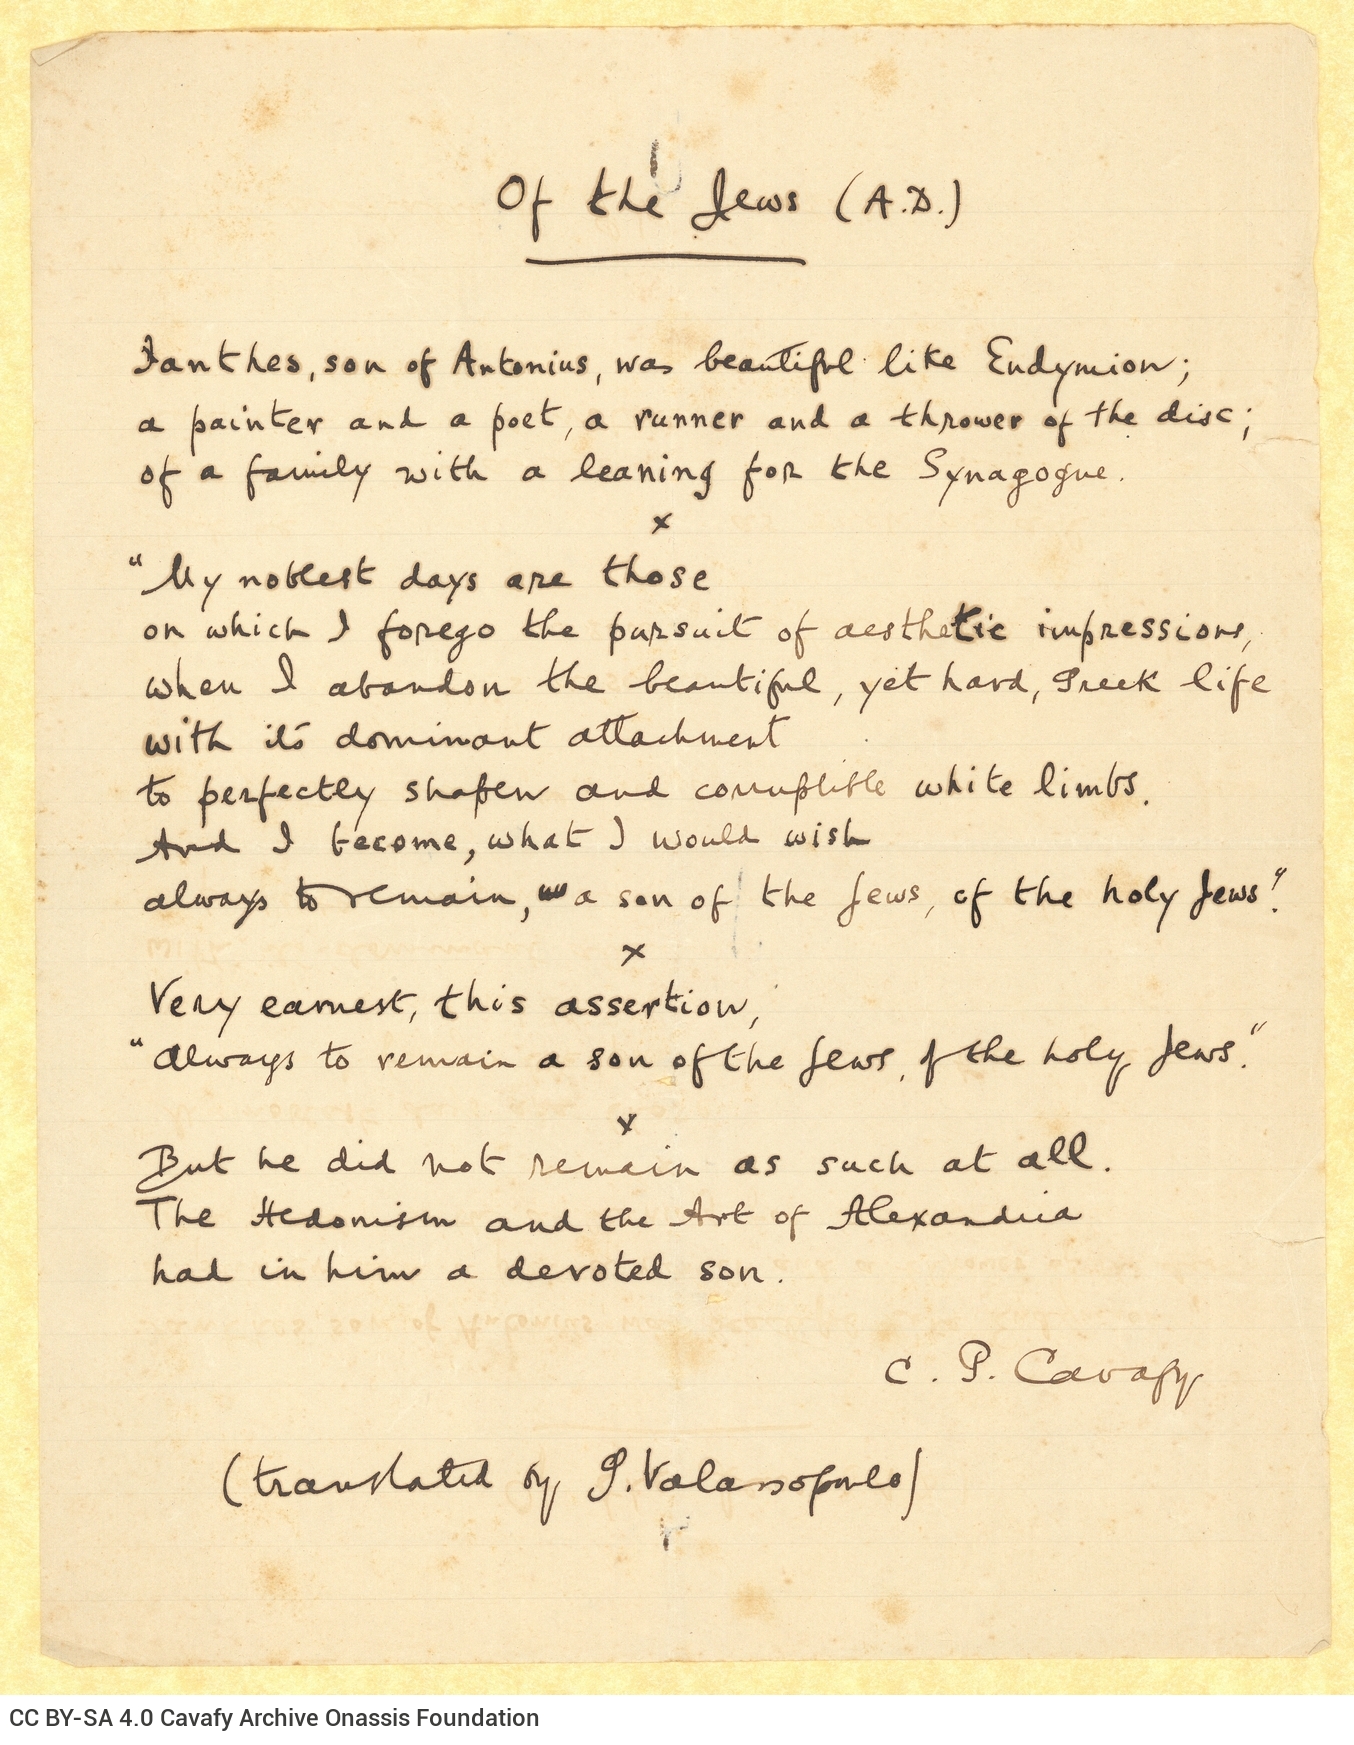 Of the Jews (A.D.)
Ianthes, son of Antonius, was beautiful like Endymion;
a painter and a poet, a runner and a thrower of the disc;
of a family with a leaning for the Synagogue.
x
"My noblest days are those
on which I forego the pursuit of aesthetic impressions,
when I abandon the beautiful, yet hard, Greek life
with its dominant attachment
to perfectly shapen and corruptible white limbs.
And I become, what I would wish
always to remain, a son of the Jews, of the holy Jews."
x
Very earnest, this assertion,
"Always to remain a son of the Jews, of the holy Jews."
x
But he did not remain as such at all.
The Hedonism and the Art of Alexandria
had in him a devoted son.
C. P. Cavafy
(translated by G. Valassopoulo)
CC BY-SA 4.0 Cavafy Archive Onassis Foundation